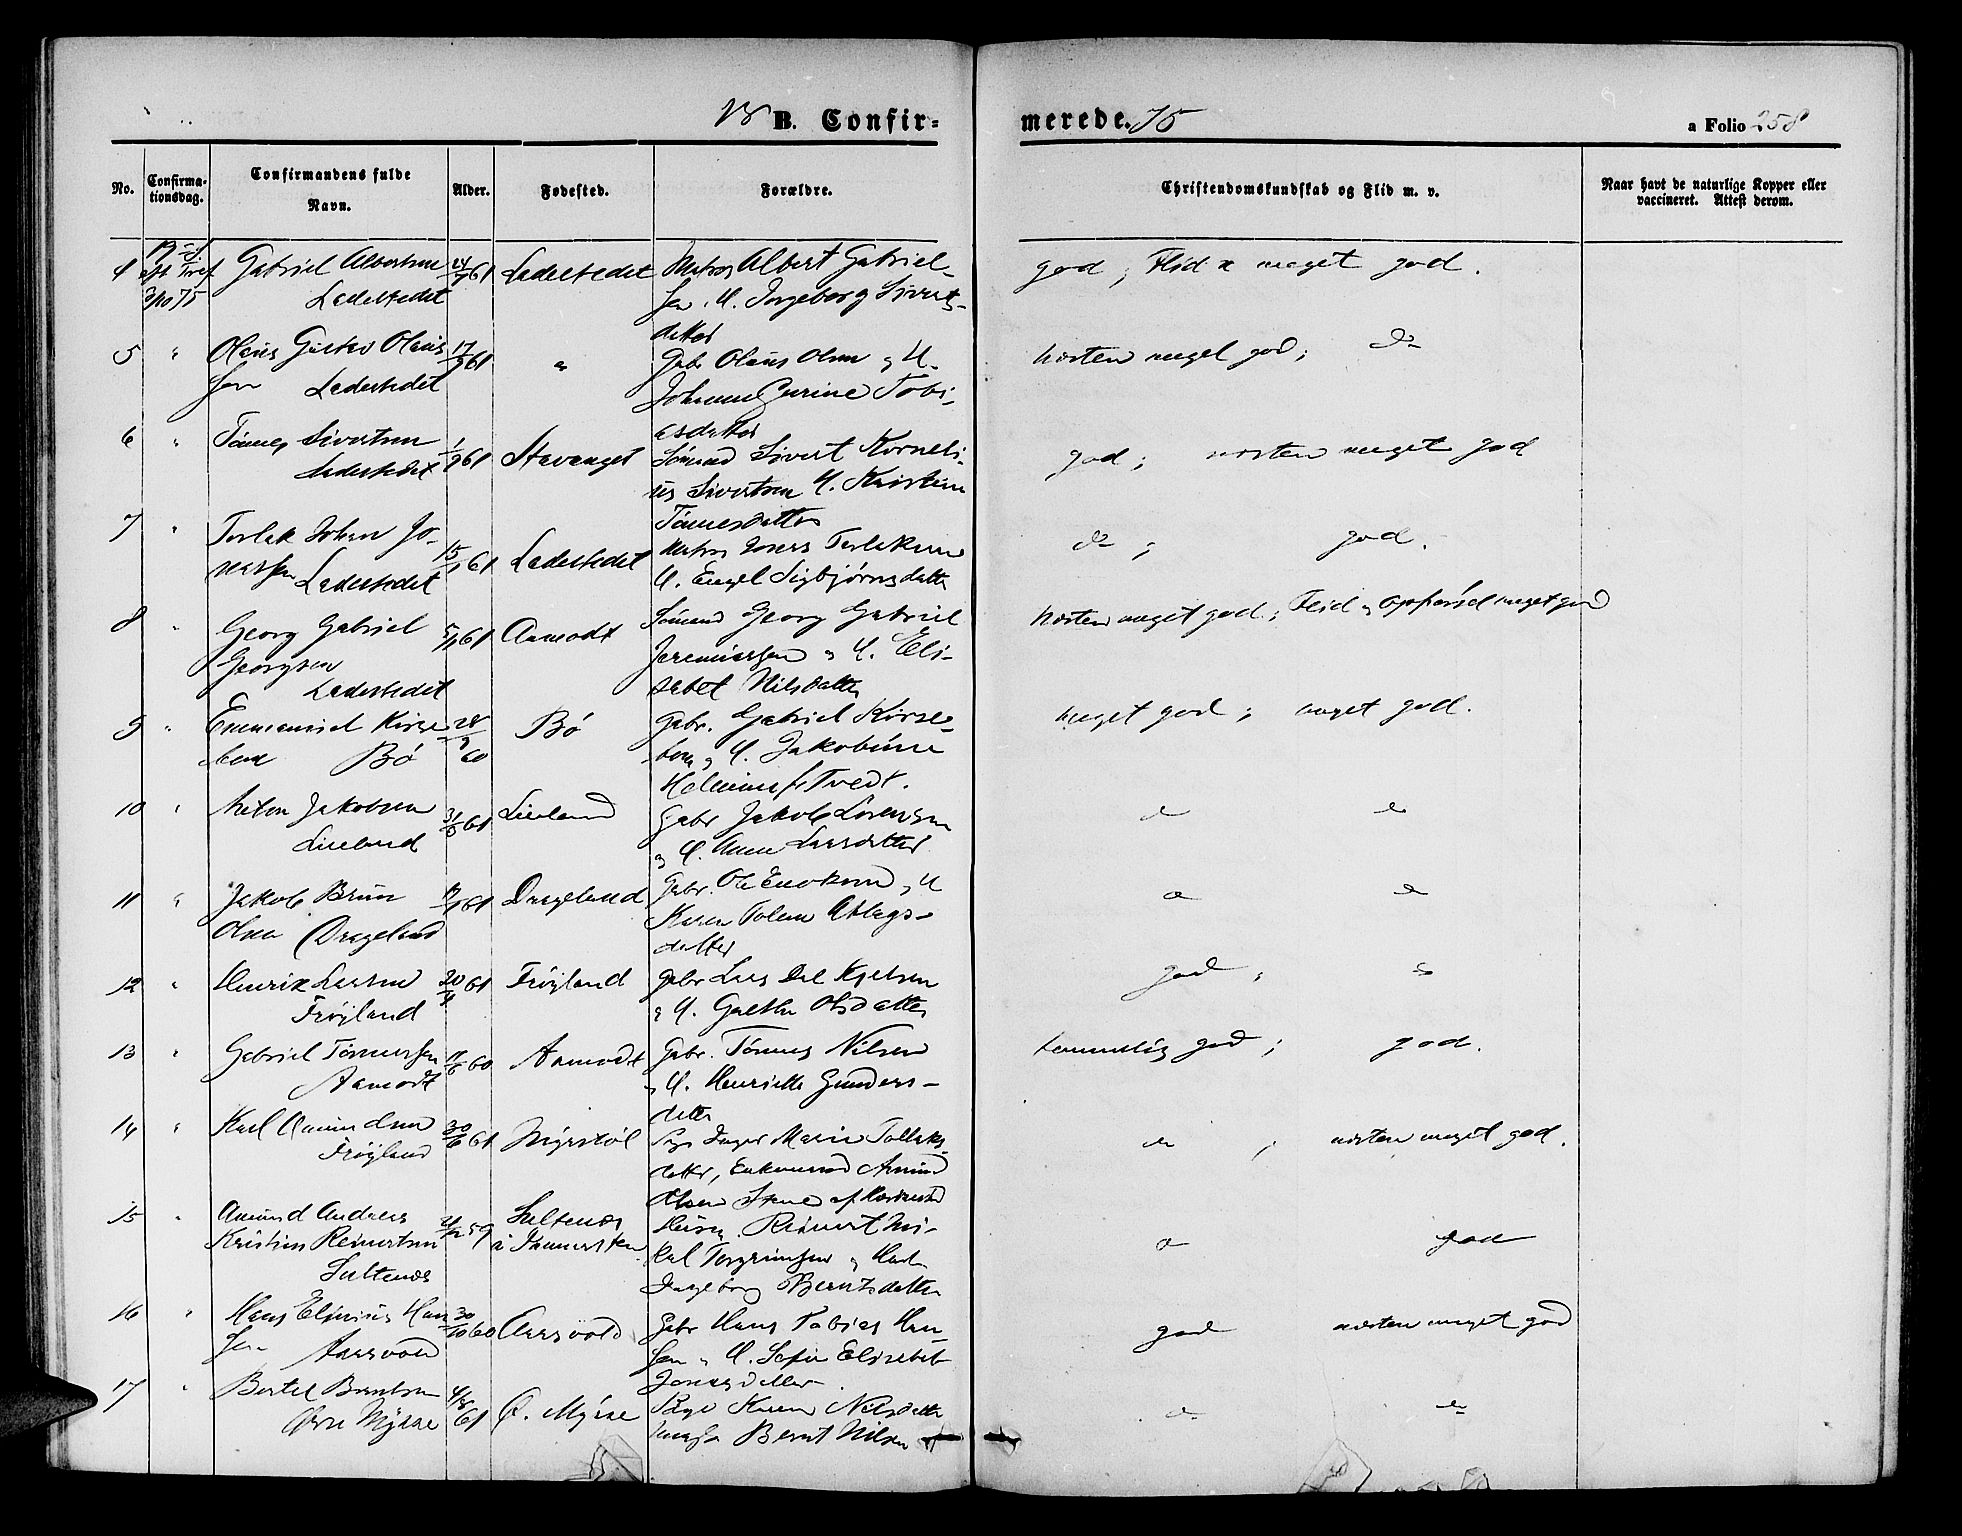 18 B. Confir-
merede. 75
a Folio 258
No.
Confirma-
tionsdag.
Confirmandens fulde
Navn.
Alder.
Fødested.
Forældre.
Christendomskundskab og Flid m. v.
Naar havt de naturlige Kopper eller
vaccineret. Attest derom.
4
3/10 75
Gabriel Albertsen
Ladestedet
61
Ladestedet
Matros Albert Gabriel-
sen, H. Ingeborg Siverts-
datter
god; Flid meget god.
5 "
Olaus Gustav Olaus
sen Ladestedet
17/9 61
"
Gbr. Olaus Olsen og H.
Johanne Gurine Tobi-
asdatter
næsten meget god; do
6 "
Tønnes Sivertsen
Ladestedet
1/9 61
Stavanger
Sømand Sivert Korneli-
us Sivertsen H. Kristine
Tønnesdatter
god; næsten meget god
7 "
Torlak Johan Jo-
nassen Ladestedet
15/1 61
Ladestedet
Matros Jonas Torlaksen
H. Engel Sigbjørnsdatter
do; god.
8 "
Georg Gabriel
Georgsen
Ladestedet
5/1 61
Aamodt
Sømand Georg Gabriel
Jeremiassen og H. Eli-
sabet Nilsdatter
næsten meget god; Flid og Opførsel meget god
9 "
Emmanuel Kirse-
bom Bø
28/9 60
Bø
Gbr. Gabriel Kirse-
bom og H. Jakobine
Helmine f. Tvedt.
meget god; meget god.
10 "
Anton Jakobsen
Lieland
31/3 61
Lieland
Gbr. Jakob Sørensen
og H. Anne Larsdatter
" "
11 "
Jakob Brun
Olsen Drageland
61
Drageland
Gbr. Ole Enoksen og H
Karen Tolene Atlags-
datter
" "
12 "
Henrik Larsen
Frøyland
20/4 61
Frøyland
Gbr Lars Dal Kjelsen
og H. Gurthe Olsdatter
god; "
13 "
Gabriel Tønnessen
Aamodt
60
Aamodt
Gbr. Tønnes Nilsen
og H. Henriette Gunders-
datter
temmelig god; god.
14 "
Karl Amundsen
Frøyland
30/6 61
Myrstøl
Pige Inger Marie Tollaks-
datter, Enkemand Amund
Olsen
" ; næsten meget god.
15 "
Amund Andreas
Kristian Reinertsen
Sultenæs
59
Sultenæs
Husm. Reinert Mi-
kal Torgrimsen og H
Ingeborg Berntsdatter
" god
16 "
Hans Elinius Han
sen Aarsvold
30/10 60
Aarsvold
Gbr Hans Tobias Han-
sen og H. Sofie Elisabet
Jonasdatter.
god næsten meget god
17 "
Bertel Berntsen
Øvre Mykse
4/8 61
Ø. Mykse
Pige Karen Nilsdatter
Ungk. Bernt Nilsen
" "